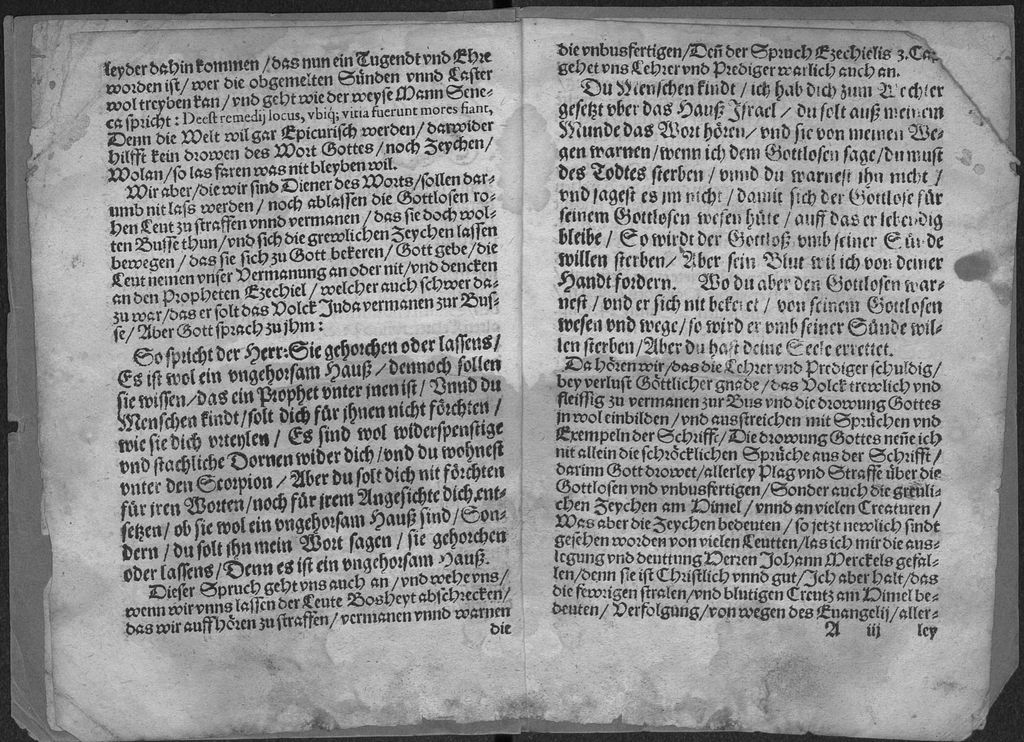 leyder dahin kommen / das nun ein Tugendt vnd Ehre
worden ist / wer die obgemelten Sünden vnnd Laster
wol treyben kan / vnd geht wie der weyse Mann Sene-
ca spricht : Deest remedij locus, vbiq; vitia fuerunt mores fiant,
Denn die Welt wil gar Epicurisch werden / darwider
hilfft kein drowen des Wort Gottes / noch Zeychen /
Wolan / so las faren was nit bleyben wil.
Wir aber / die wir sind Diener des Worts / sollen dar-
umb nit lass werden / noch ablassen die Gottlosen ro-
hen Leut zu straffen vnnd vermanen / das sie doch wol-
ten Busse thun / vnd sich die grewlichen Zeychen lassen
bewegen / das sie sich zu Gott bekeren / Gott gebe / die
Leut nemen vnser Vermanung an oder nit / vnd dencken
an den Propheten Ezechiel / welcher auch schwer da-
zu war / das er solt das Volck Juda vermanen zur Bus-
se / Aber Gott sprach zu jhm :
So spricht der Herr: Sie gehorchen oder lassens /
Es ist wol ein vngehorsam Hauß / dennoch sollen
sie wissen / das ein Prophet vnter jnen ist / Vnnd du
Menschen kindt / solt dich für jhnen nicht förchten /
wie sie dich vrteylen / Es sind wol widerspenstige
vnd stachliche Dornen wider dich / vnd du wohnest
vnter den Scorpion / Aber du solt dich nit förchten
für jren Worten / noch für jrem Angesichte dich ent-
setzen / ob sie wol ein vngehorsam Hauß sind / Son-
dern / du solt jhn mein Wort sagen / sie gehorchen
oder lassens / Denn es ist ein vngehorsam Hauß.
Dieser Spruch geht vns auch an / vnd wehe vns /
wenn wir vnns lassen der Leute Bosheyt abschrecken /
das wir auffhören zu straffen / vermanen vnnd warnen
die
die vnbusfertigen / Deñ der Spruch Ezechielis 3. Ca.
gehet vns Lehrer vnd Prediger warlich auch an.
Du Menschen kindt / ich hab dich zum Wechter
gesetzt vber das Hauß Israel / du solt auß meinem
Munde das Wort hören / vnd sie von meinen We-
gen warnen / wenn ich dem Gottlosen sage / du must
des Todtes sterben / vnnd du warnest jhn nicht /
vnd sagest es jm nicht / damit sich der Gottlose für
seinem Gottlosen wesen hüte / auff das er lebendig
bleibe / So wirdt der Gottloß vmb seiner Sünde
willen sterben / Aber sein Blut wil ich von deiner
Handt fordern. Wo du aber den Gottlosen war-
nest / vnd er sich nit bekeret / von seinem Gottlosen
wesen vnd wege / so wird er vmb seiner Sünde wil-
len sterben / Aber du hast deine Seele errettet.
Da hören wir / das die Lehrer vnd Prediger schuldig /
bey verlust Göttlicher gnade / das Volck trewlich vnd
fleissig zu vermanen zur Bus vnd die drowung Gottes
jn wol einbilden / vnd ausstreichen mit Sprüchen vnd
Exempeln der Schrifft / Die drowung Gottes neñe ich
nit allein die schröcklichen Sprüche aus der Schrifft /
darinn Gott drowet / allerley Plag vnd Straffe über die
Gottlosen vnd vnbusfertigen / Sonder auch die greuli-
chen Zeychen am Himel / vnnd an vielen Creaturen /
Was aber die Zeychen bedeuten / so jetzt newlich sindt
gesehen worden von vielen Leutten / las ich mir die aus-
legung vnd deuttung Herren Johann Merckels gefal-
len / denn sie ist Christlich vnnd gut / Ich aber halt / das
die fewrigen stralen / vnd blutigen Creutz am Himel be-
deuten / Verfolgung / von wegen des Euangelij / aller-
A iij ley